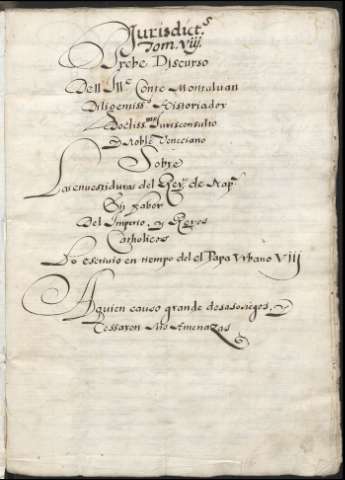 Jurisdict.s
Tom. viij.
Brebe Discurso
Dell Ill.e Conte Monsalvan
Diligentiss.o Historiador
Doctiss.mo Jurisconsulto
Noble Veneciano
Sobre
Las envestiduras del Rey.o de Nap.s
En fabor
Del Imperio, y Reyes
Catholicos
Lo escrivio en tiempo del el Papa Vrbano VIII
A quien causo grande desasosiegos, y
Cessaron sus Amenazas